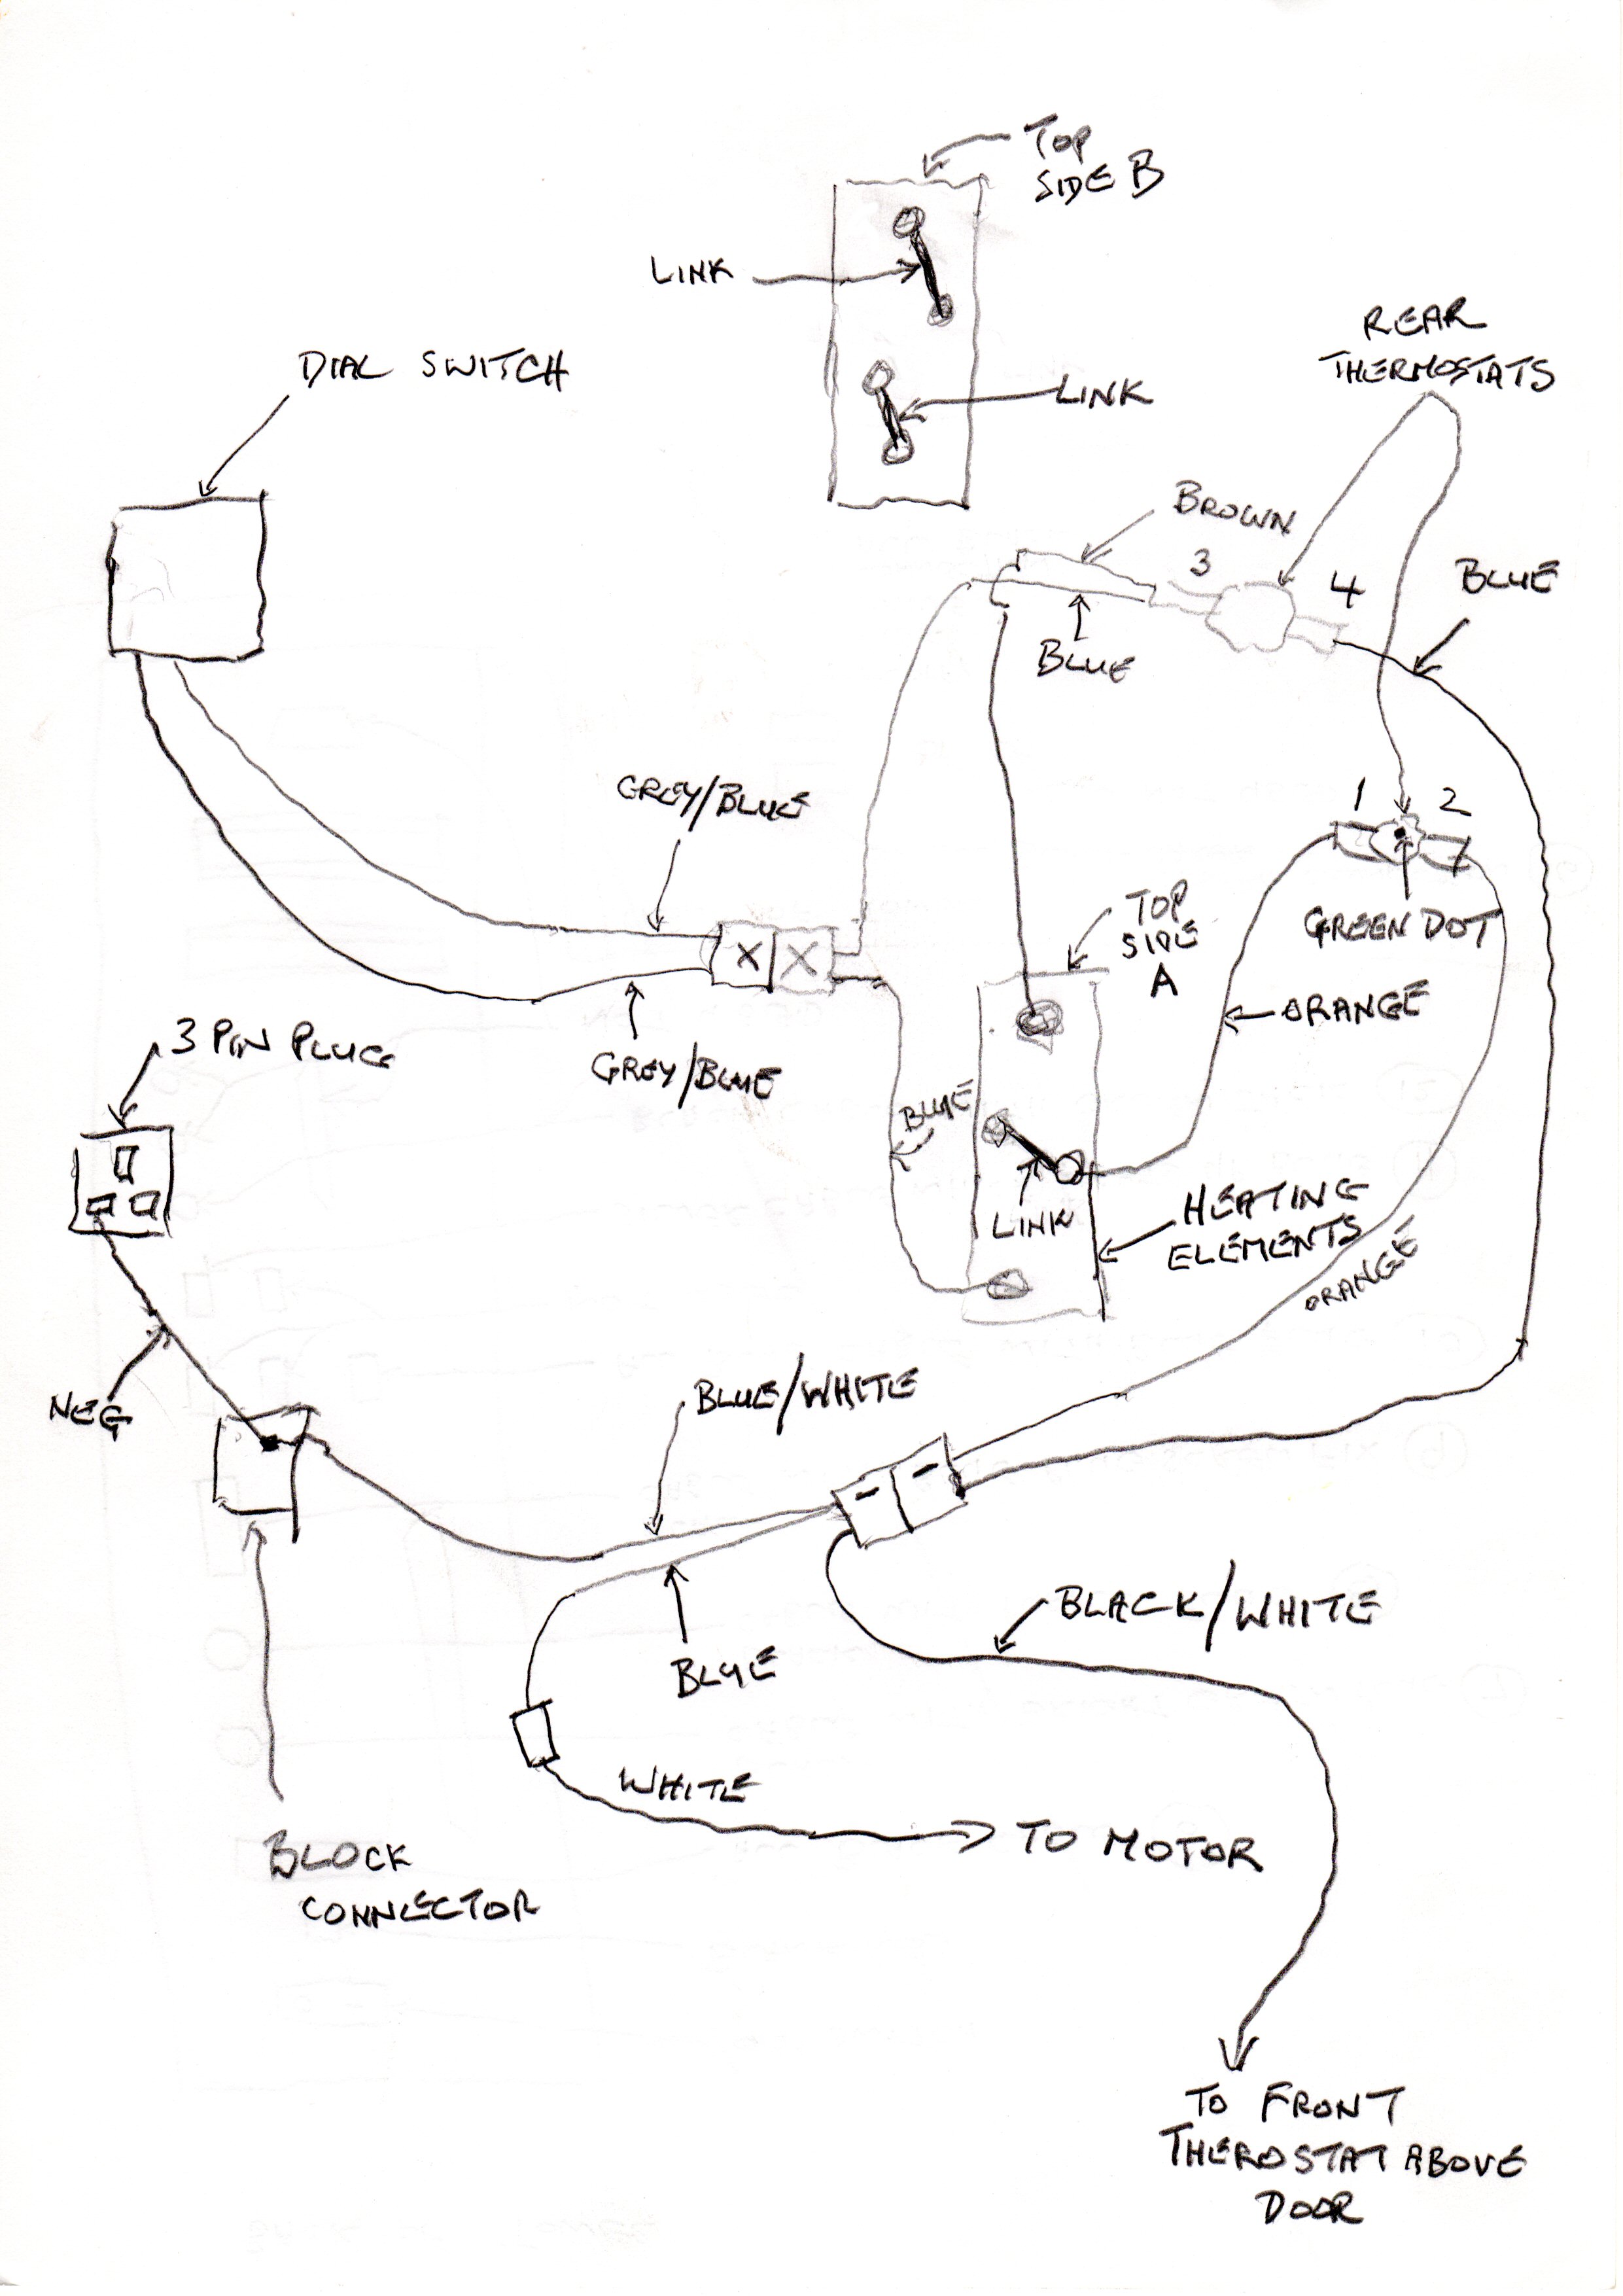 TOP
SIDE B
LINK
REAR
THERMOSTATS
DIAL SWITCH
LINK
BROWN
3
4
BLUE
BLUE
GREY/BLUE
1
2
TOP
SIDE
A
GREEN DOT
X X
ORANGE
3 PIN PLUG
GREY/BLUE
BLUE
LINK
HEATING
ELEMENTS
ORANGE
NEG
BLUE/WHITE
BLACK/WHITE
BLUE
WHITE
TO MOTOR
BLOCK
CONNECTOR
TO FRONT
THEROSTAT ABOVE
DOOR